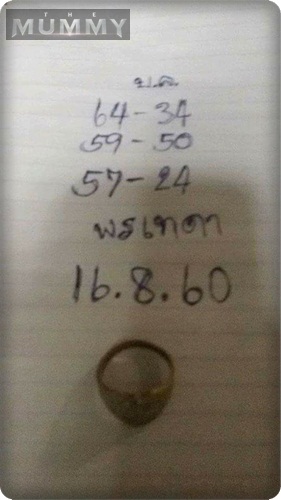 THE
MUMMY
บ.ค.
64-34
59-50
57-24
พรเทดา
16.8.60